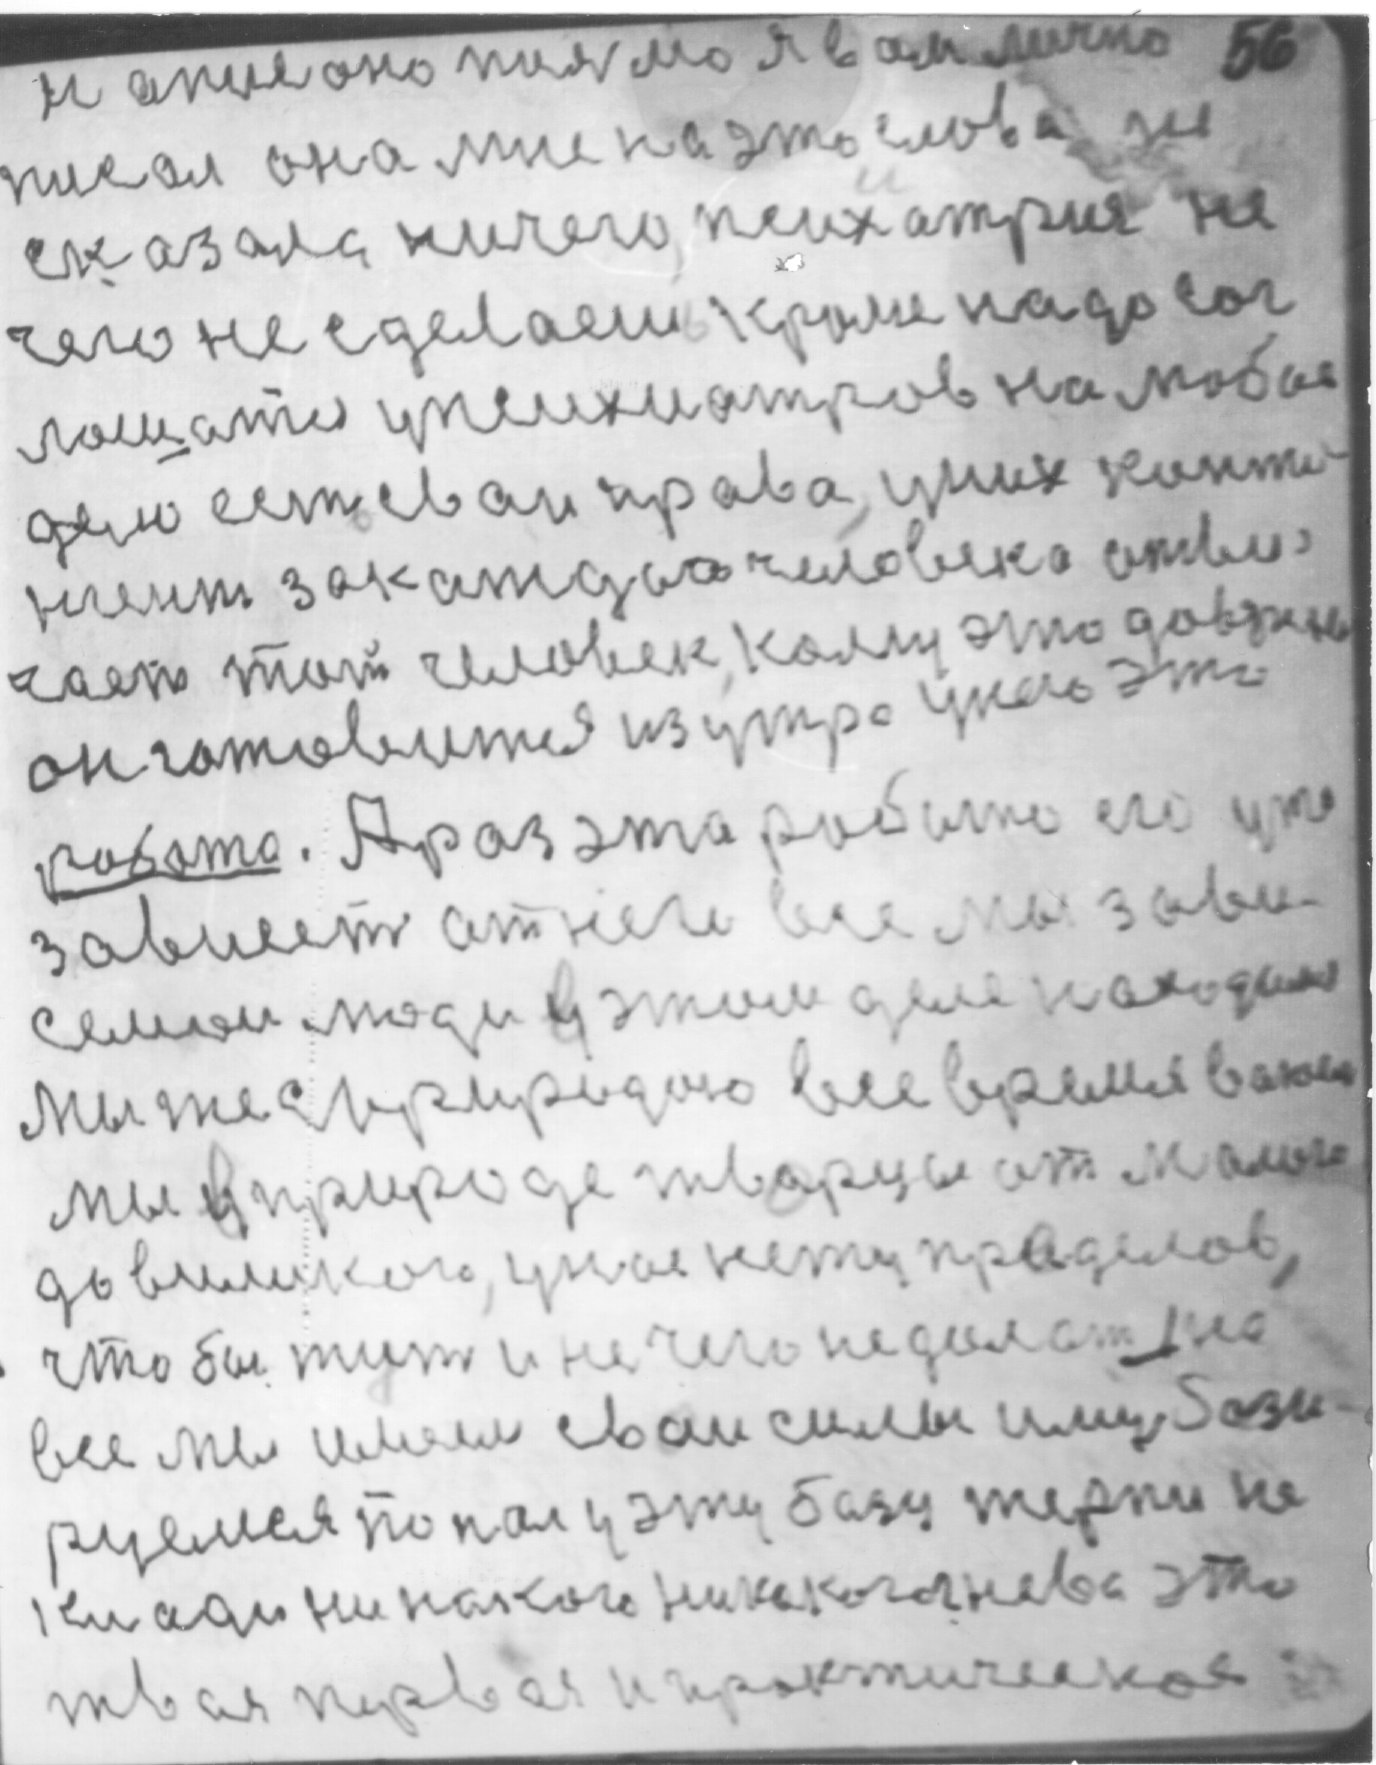 56
и описоно письмо я вам лично
писал она мне на это слова не
сказала ничего, психиатрия не
чего не сделаешь кроме надо сог
лощатся у психиатров на любое
дело есть сваи права, у них конти
нгент за каждого человека отве
чает тот человек, кому это довжно
он готовится из утра у него это
робота. А раз эта робота его у то
зависет от него все мы зави-
семои люди в этом деле находимся
мы же с природою все время
мы в природе творцы от малого
до великого, у нас нету пределов,
что бы тут и не чего не делать на
все мы имеем сваи силы и му бази-
руемся попал у эту базу терпи не
клади никакого никакого гнева это
твая первая и практическая